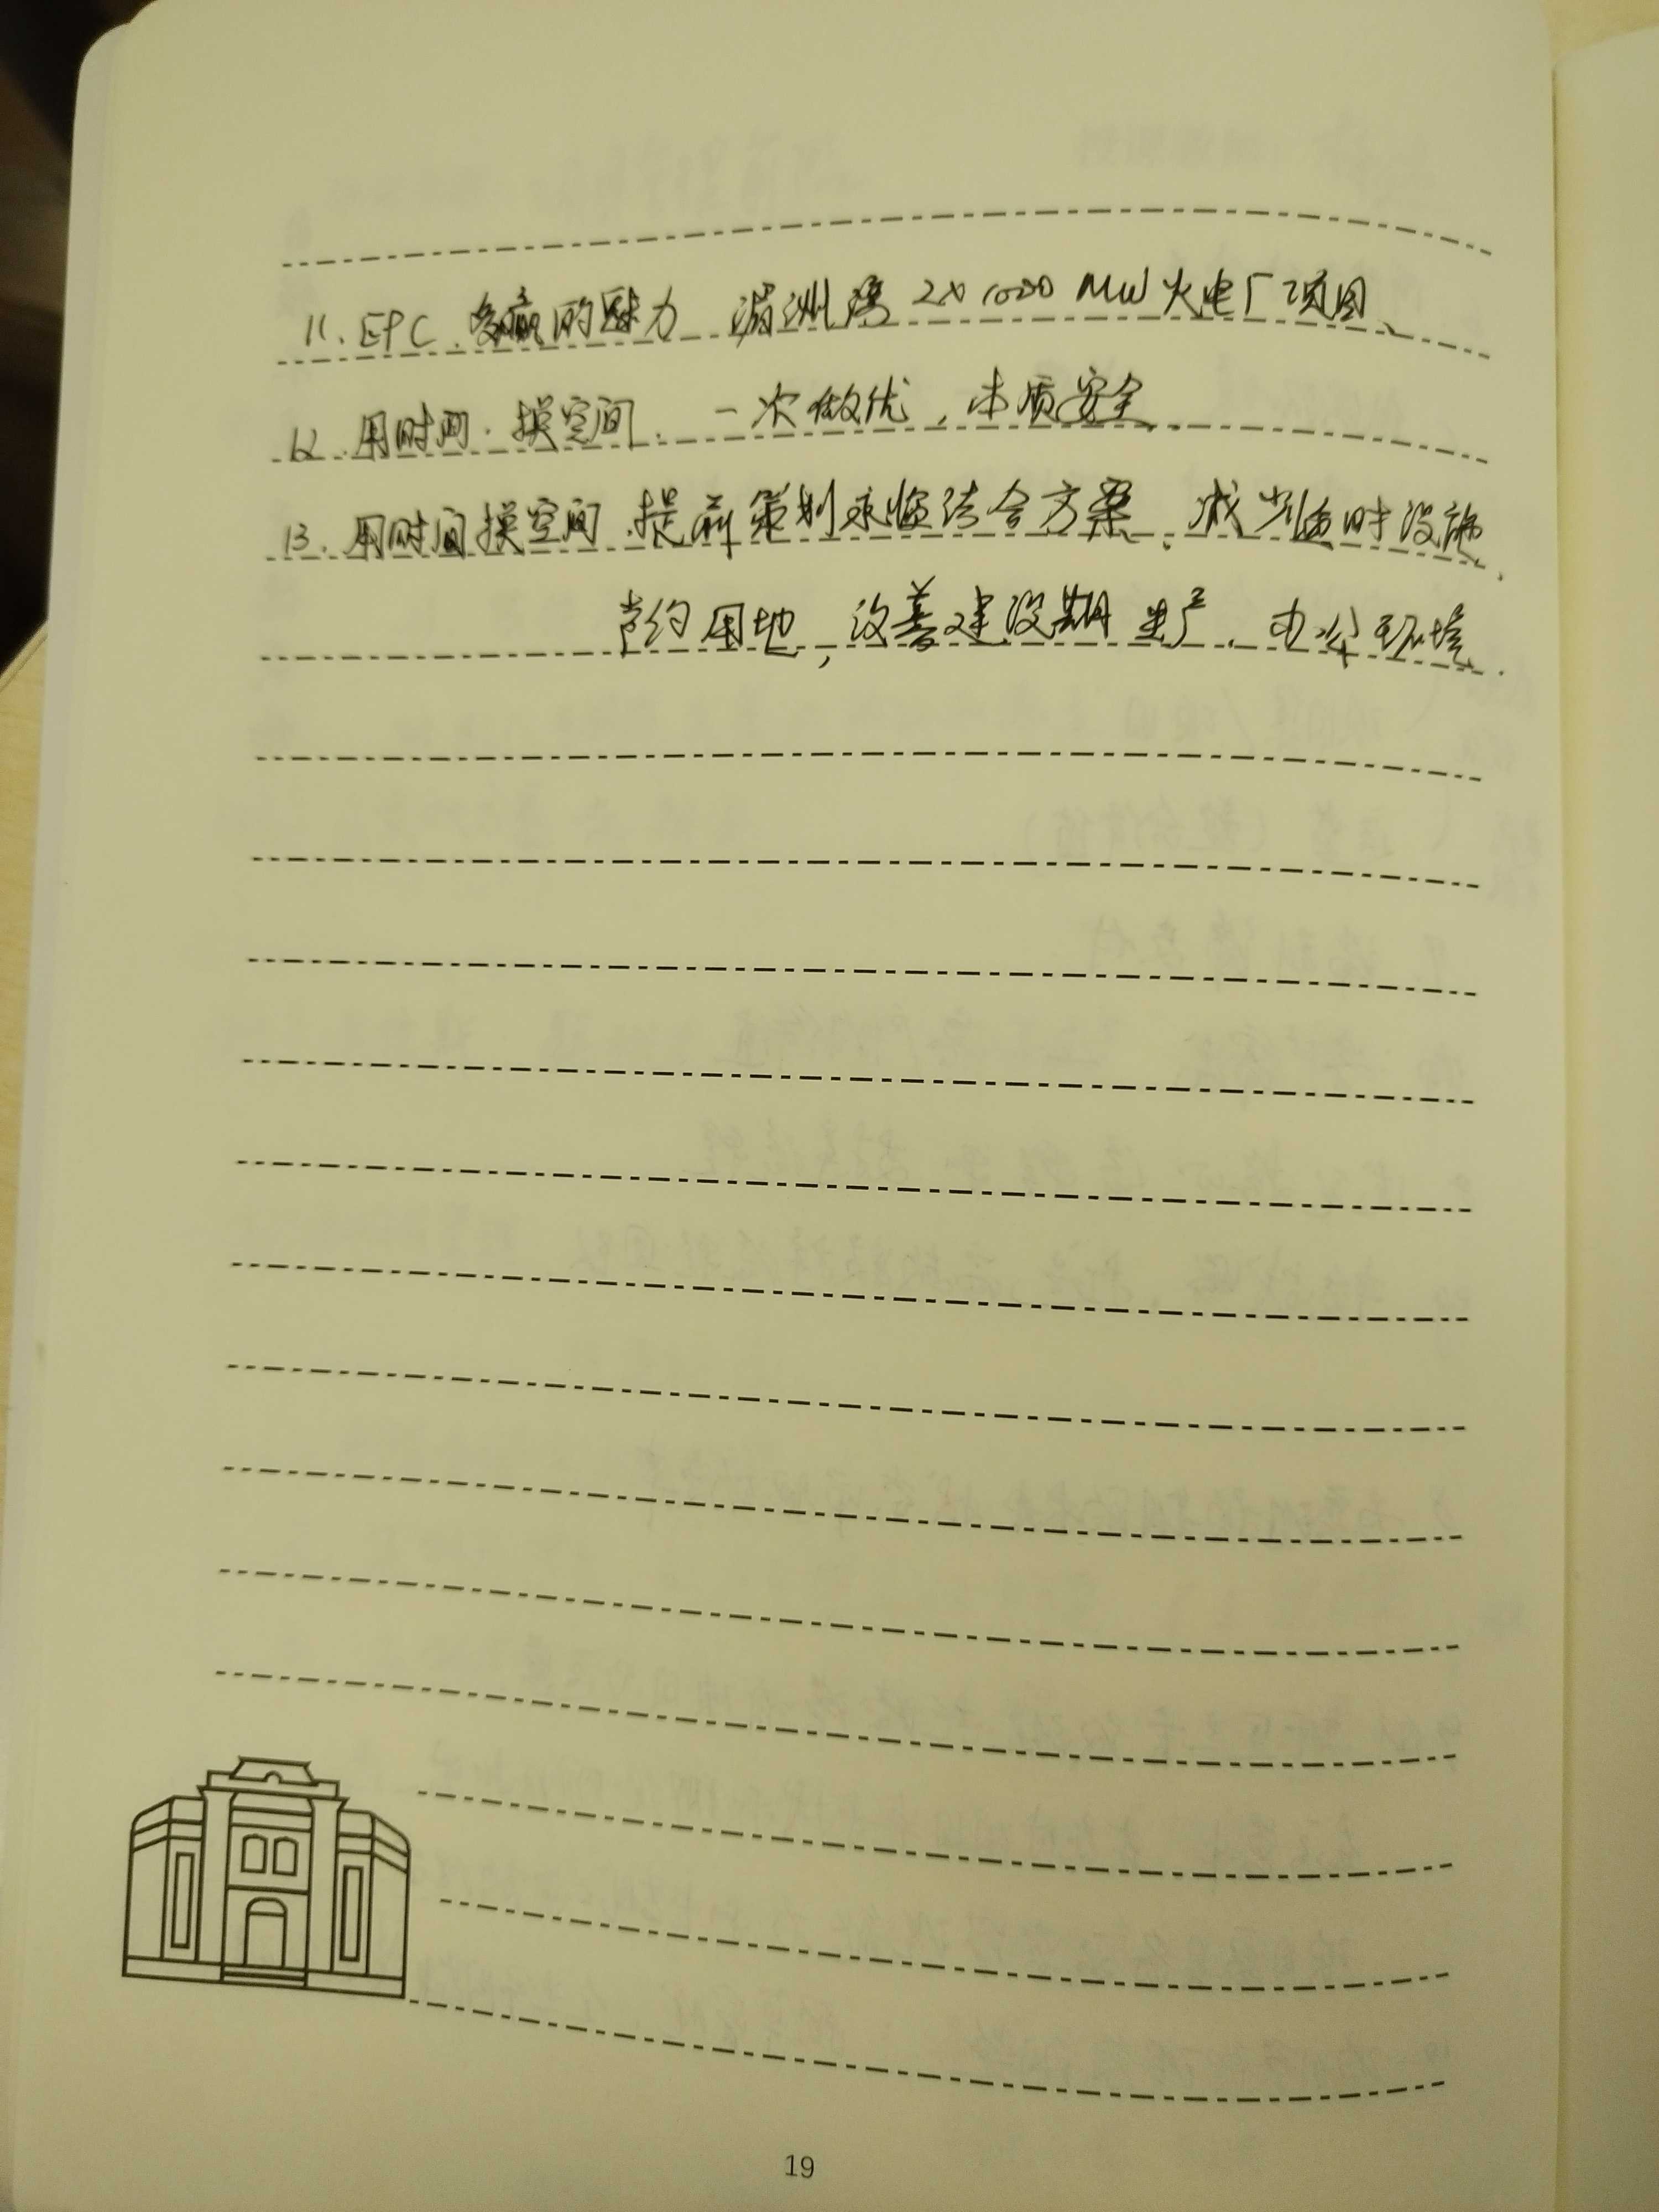 11. EPC 多赢的魅力 湄洲湾 2x1000 MW 火电厂项目、
12. 用时间. 换空间. 一次做优, 本质安全.
13. 用时间换空间. 提前策划永临结合方案、减少临时设施.
节约用地, 改善建设期生产、办公环境.
19